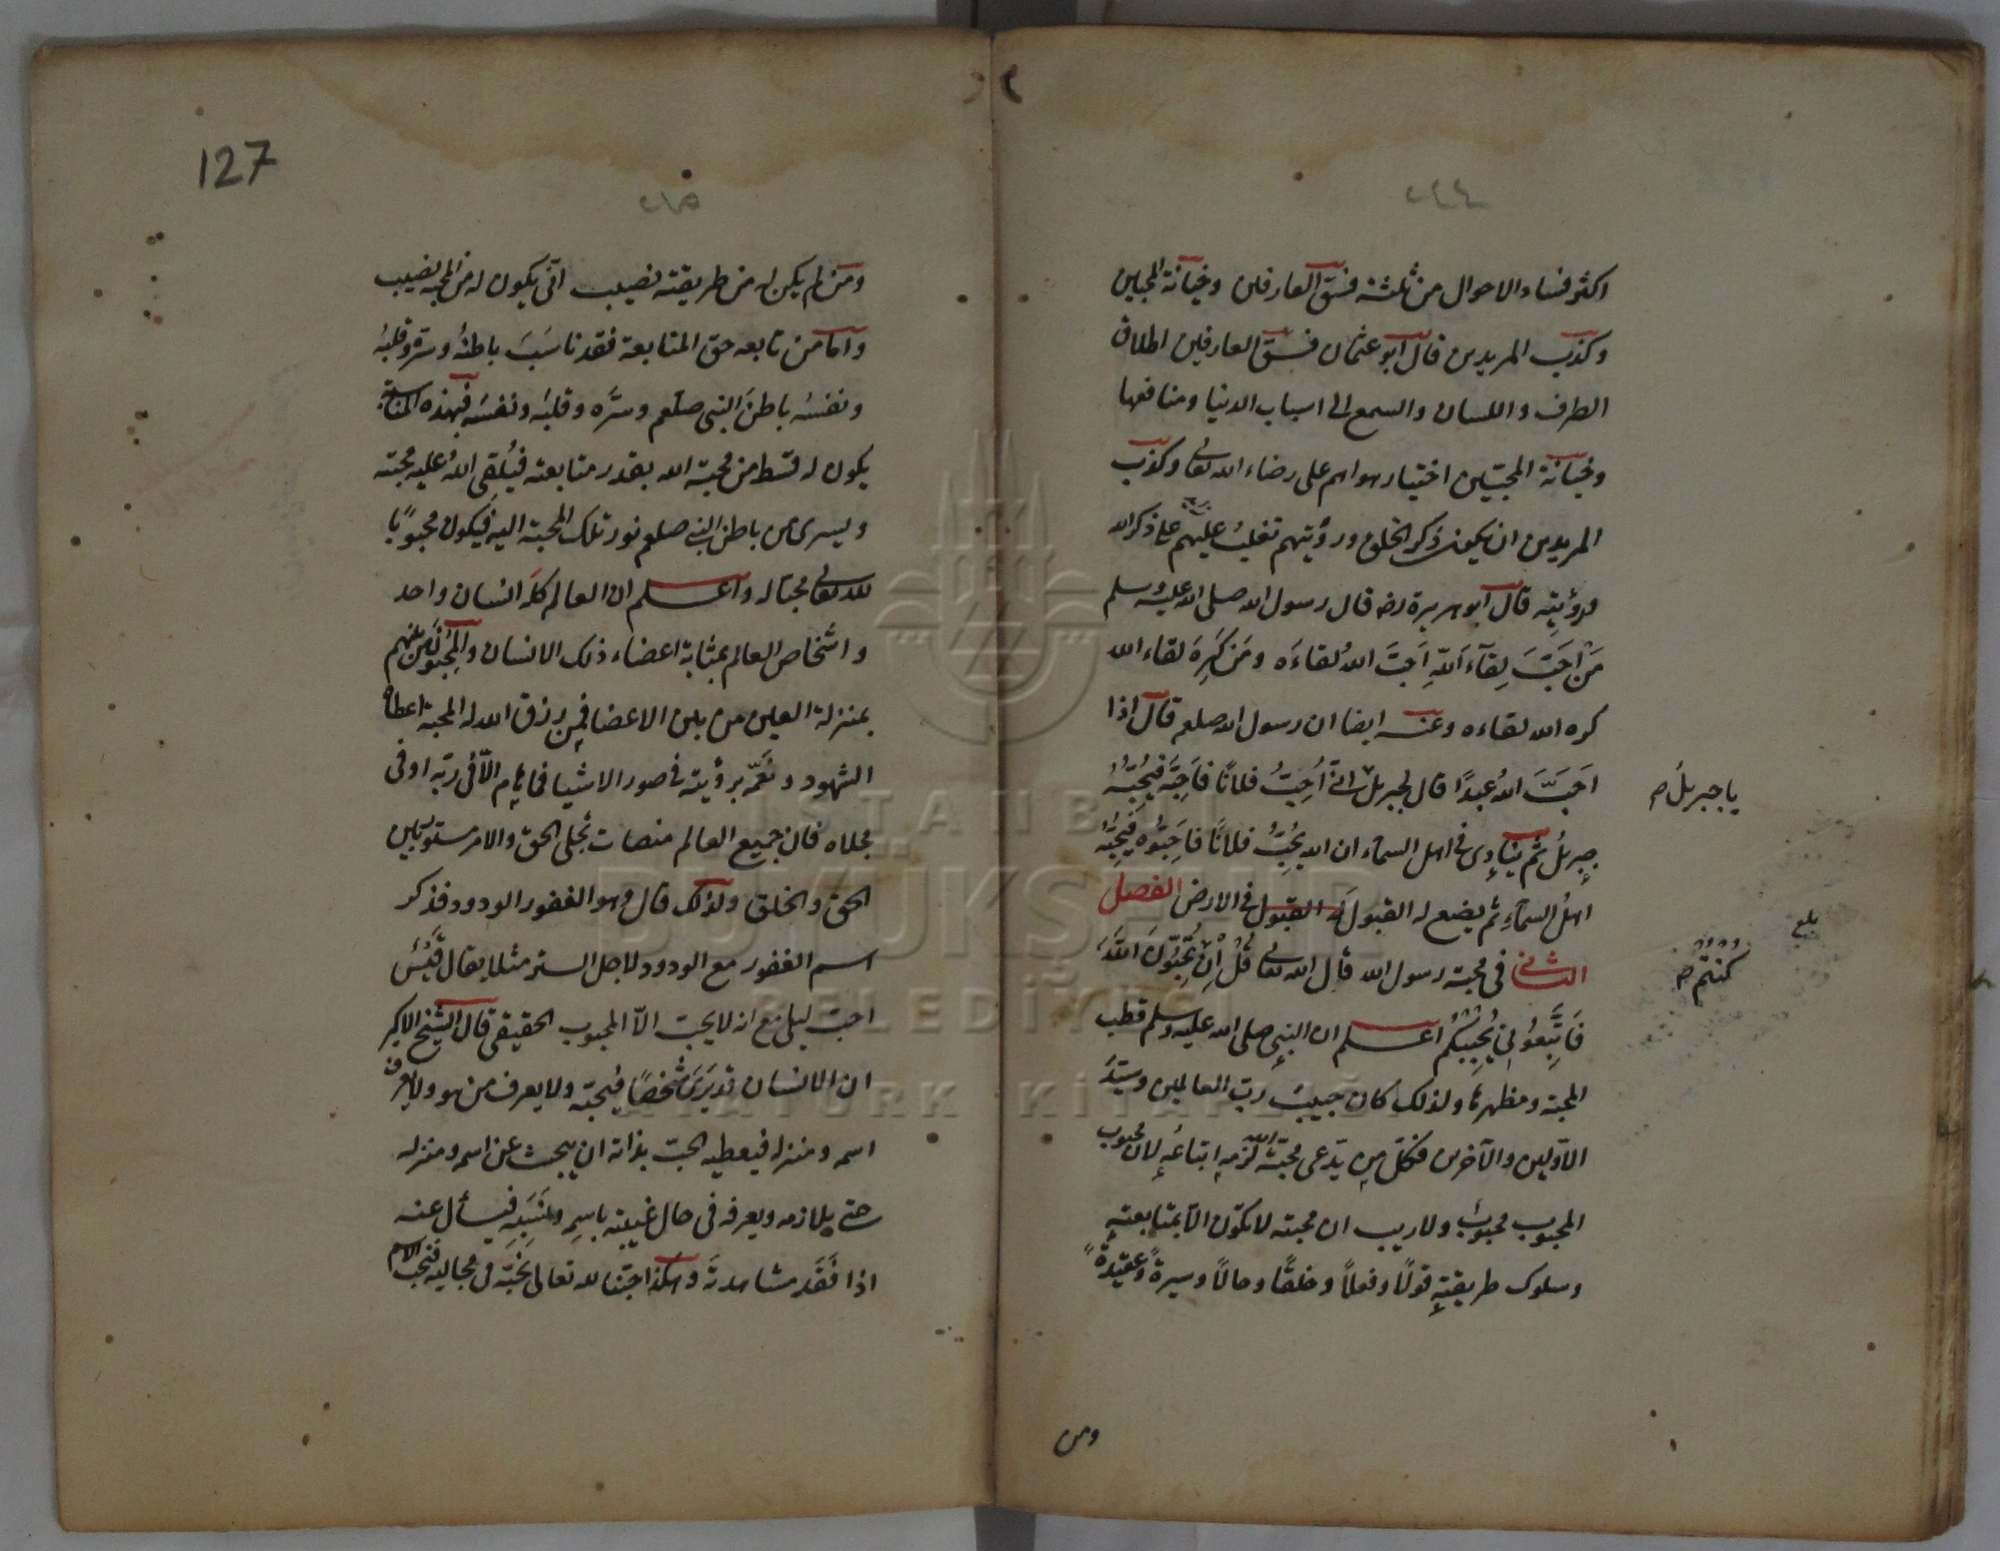 ٢٤٤
اكثر فساد الاحوال من ثلثة فسق العارفين وخيانة المحبين
وكذب المريدين قال ابو عثمان فسق العارفين اطلاق
الطرف واللسان والسمع الى اسباب الدنيا ومنافعها
وخيانة المحبّين اختيار هواهم على رضاء الله تعالى وكذب
المريدين ان يكون ذكر الخلق ورؤيتهم تغلب عليهم على ذكر الله
ورؤيتِه قال ابو هريرة رضه قال رسول الله صلى الله عليه وسلم
مَنْ اَحَبَّ لِقَآءَ اللّهِ اَحَبَّ اللهُ لقاءَه ومَن كَرِهَ لقاء الله
كره الله لقاءه وعنه ايضا ان رسول الله صلعم قال اذا
اَحَبَّ اللهُ عبدًا قال لجبريل انّى اُحِبُّ فلانًا فاَحِبَّه فيُحِبُّهُ
يا جبريلُ صح
جبريلُ ثم ينادِى فى اهل السمآء ان الله يُحِبُّ فلانًا فاَحِبُّوه فيُحِبُّهُ
اهلُ السمآءِ ثم يضع له القبول له القبول فى الارض الفصل
بلغ
الثانى فى محبة رسول الله قال الله تعالى قُلْ اِنْ تُحِبُّونَ اللَّهَ
كُنْتُمْ صح
فَاتَّبِعُونِى يُحْبِبْكُمُ اعلم ان النبى صلى الله عليه وسلم قطب
المحبة ومظهرها ولذلك كان حبيبَ ربّ العالمين وسيّدَ
الاوّلين والآخرين فكلّ من يدّعى محبّةَ الله لَزِمَه اتباعُه لان محبوب
المحبوب محبوبٌ ولا ريب ان محبته لا تكون الّا بمتابعتِه
وسلوك طريقتِه قولًا وفعلًا وخلقًا وحالًا وسيرةً وعقيدةً
ومن
127
ومن لم يكن له من طريقته نصيب اَنّى يكون له من المحبة نصيب
واما من تابعه حق المتابعة فقد ناسَبَ باطنُه وسرّه وقلبُه
ونفسُه باطنَ النبى صلعم وسرَّه وقلبَه ونفسَه فبهذه المناسبة
يكون له قسط من محبة الله بقدر متابعته فيُلقِى اللهُ عليه محبته
ويسرى من باطن النبى صلعم نور تلك المحبة اليه فيكون محبوبًا
لله تعالى محبّا له واعلم ان العالم كلَّه انسان واحد
واشخاص العالم بمثابة اعضاء ذلك الانسان والمحبّون من بينهم
بمنزلة العين من بين الاعضا فمن رزق الله له المحبة اعطاه
الشهود ونَعَّمَه برؤيته فى صور الاشيا فما يهيم الّا فى ربّه او فى
مجلاه فان جميع العالم منصات تجلى الحق والامر مستو بين
الحق والخلق ولذلك قال وهو الغفور الودود فذكر
اسم الغفور مع الودود لاجل الستر مثلا يقال قَيْسٌ
احبّ ليلى مع انه لا يحبّ الاّ المحبوب الحقيقى قال الشيخ الاكبر
ان الانسان قد يَرَى شخصًا فيُحبّه ولا يعرف من هو ولا يعرف
اسمه ومنزله فيعطيه الحبّ بذاته ان يبحث عن اسمه ومنزله
حتى يلازمه ويعرفه فى حال غيبته باسمِه ونَسَبِه فيسأل عنه
اذا فَقَدَ مشاهدتَه وهكذا حبّنا لله تعالى نحبّه فى مجاليه